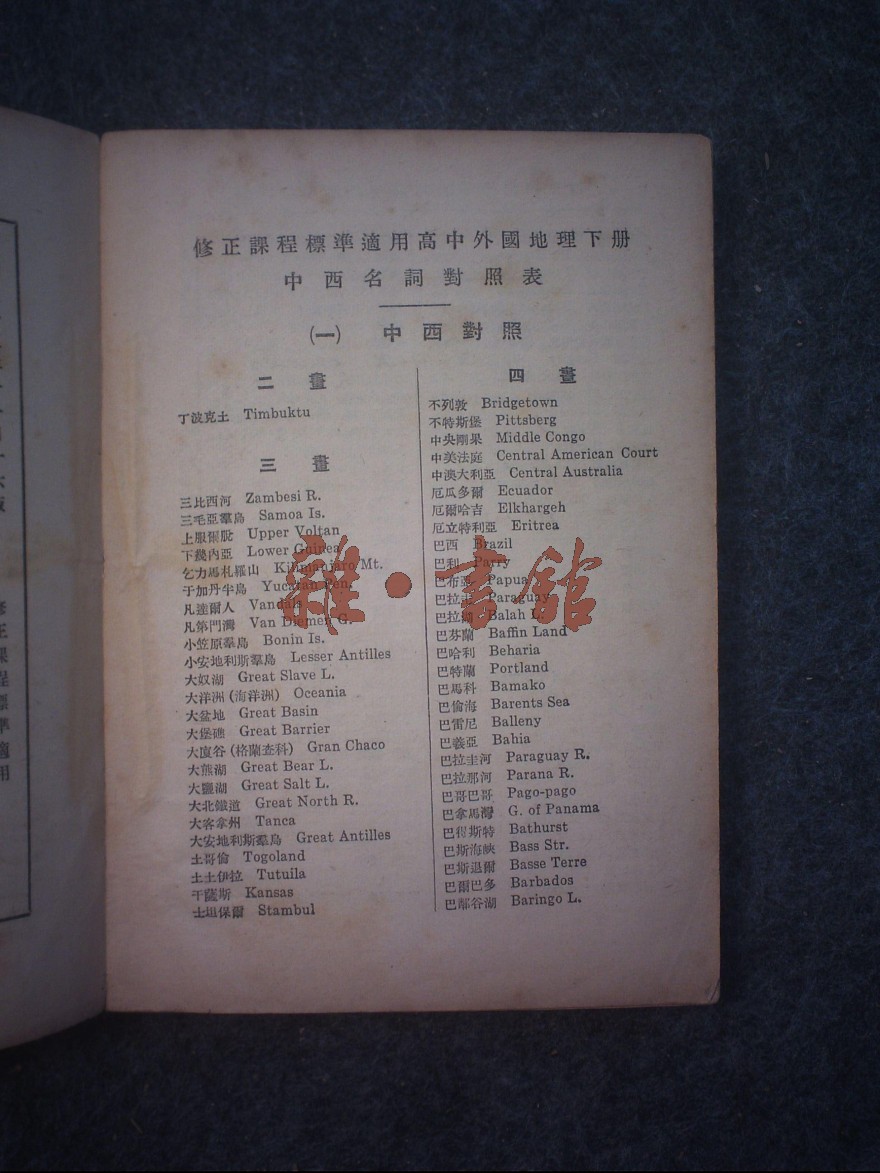 修正課程標準適用高中外國地理下册
中西名詞對照表
(一) 中西對照
二畫
丁波克土 Timbuktu
三畫
三比西河 Zambesi R.
三毛亞羣島 Samoa Is.
上服爾股 Upper Voltan
下幾內亞 Lower Guinea
乞力馬札羅山 Kilimanjaro Mt.
于加丹半島 Yucatan Pen.
凡達爾人 Vandals
凡第門灣 Van Diemen G.
小笠原羣島 Bonin Is.
小安地利斯羣島 Lesser Antilles
大奴湖 Great Slave L.
大洋洲(海洋洲) Oceania
大盆地 Great Basin
大堡礁 Great Barrier
大廈谷(格蘭查科) Gran Chaco
大熊湖 Great Bear L.
大鹽湖 Great Salt L.
大北鐵道 Great North R.
大客拿州 Tanca
大安地利斯羣島 Great Antilles
土哥倫 Togoland
土土伊拉 Tutuila
干薩斯 Kansas
士坦保爾 Stambul
四畫
不列敦 Bridgetown
不特斯堡 Pittsberg
中央剛果 Middle Congo
中美法庭 Central American Court
中澳大利亞 Central Australia
厄瓜多爾 Ecuador
厄爾哈吉 Elkhargeh
厄立特利亞 Eritrea
巴西 Brazil
巴利 Parry
巴布亞 Papua
巴拉圭 Paraguay
巴拉湖 Balah L.
巴芬蘭 Baffin Land
巴哈利 Beharia
巴特蘭 Portland
巴馬科 Bamako
巴倫海 Barents Sea
巴雷尼 Balleny
巴義亞 Bahia
巴拉圭河 Paraguay R.
巴拉那河 Parana R.
巴哥巴哥 Pago-pago
巴拿馬灣 G. of Panama
巴得斯特 Bathurst
巴斯海峽 Bass Str.
巴斯退爾 Basse Terre
巴爾巴多 Barbados
巴鄰谷湖 Baringo L.
雜·書舘
修正課程標準適用